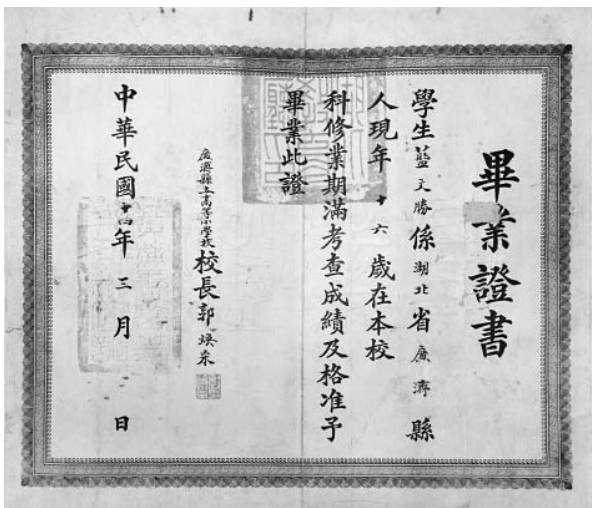 畢業證書
學生藍文勝係湖北省廣濟縣
人現年十六歲在本校
科修業期滿考查成績及格准予
畢業此證
廣濟縣立高等小學校校長郭煥
中華民國十四年三月 日